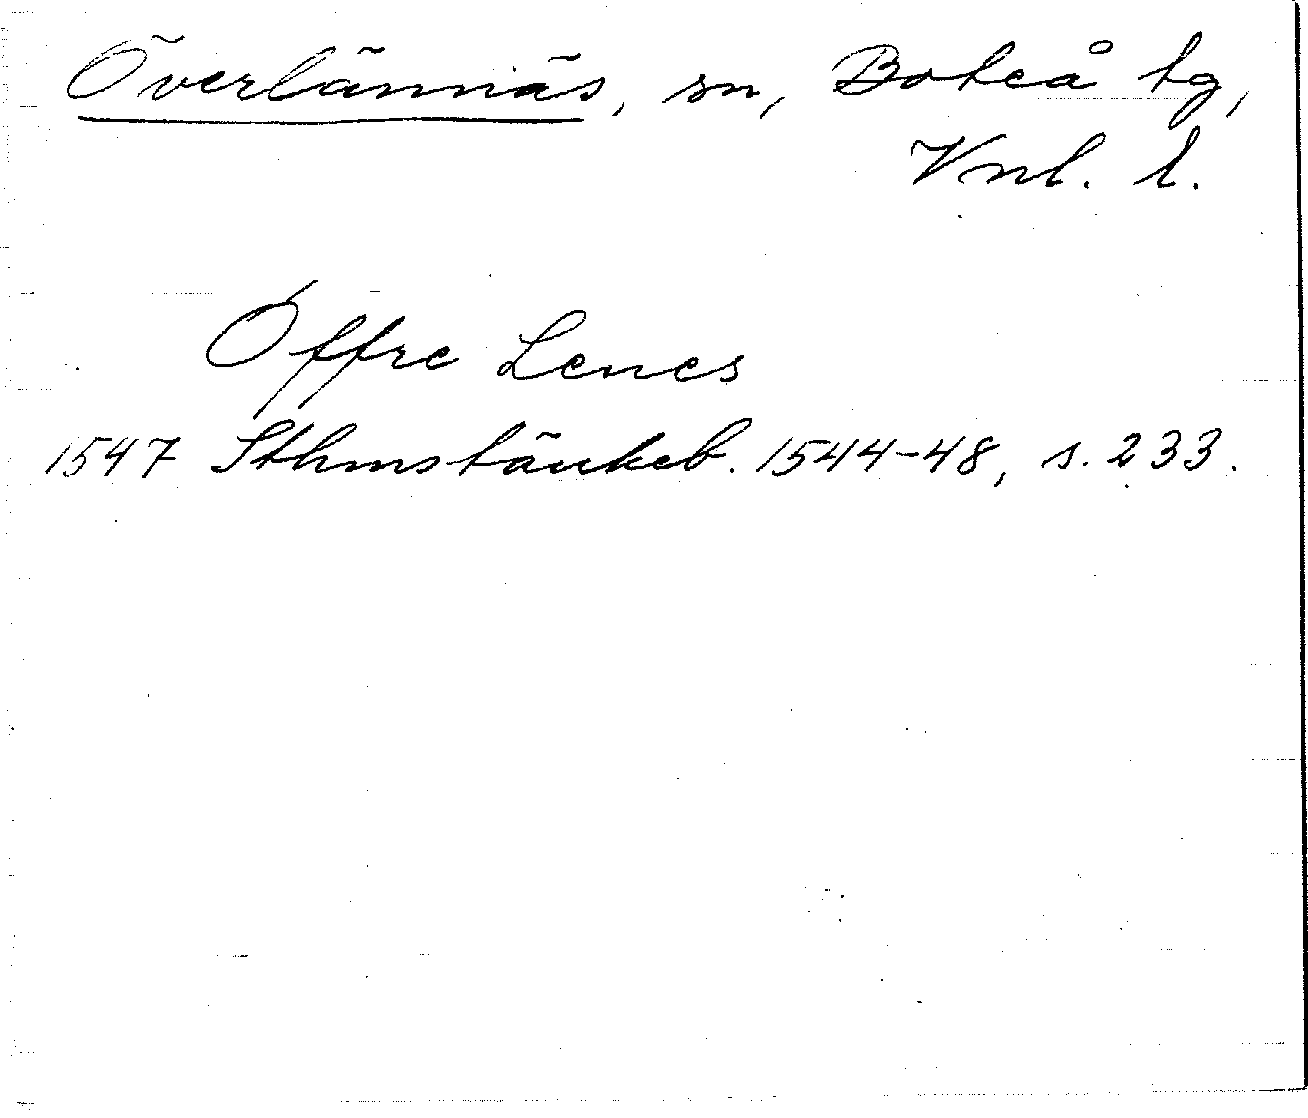 Överlännäs, sn, Boteå tg,
Vnl. l.
Óffre Lenes
1547 Sthmstänkeb. 1544-48, s. 233.